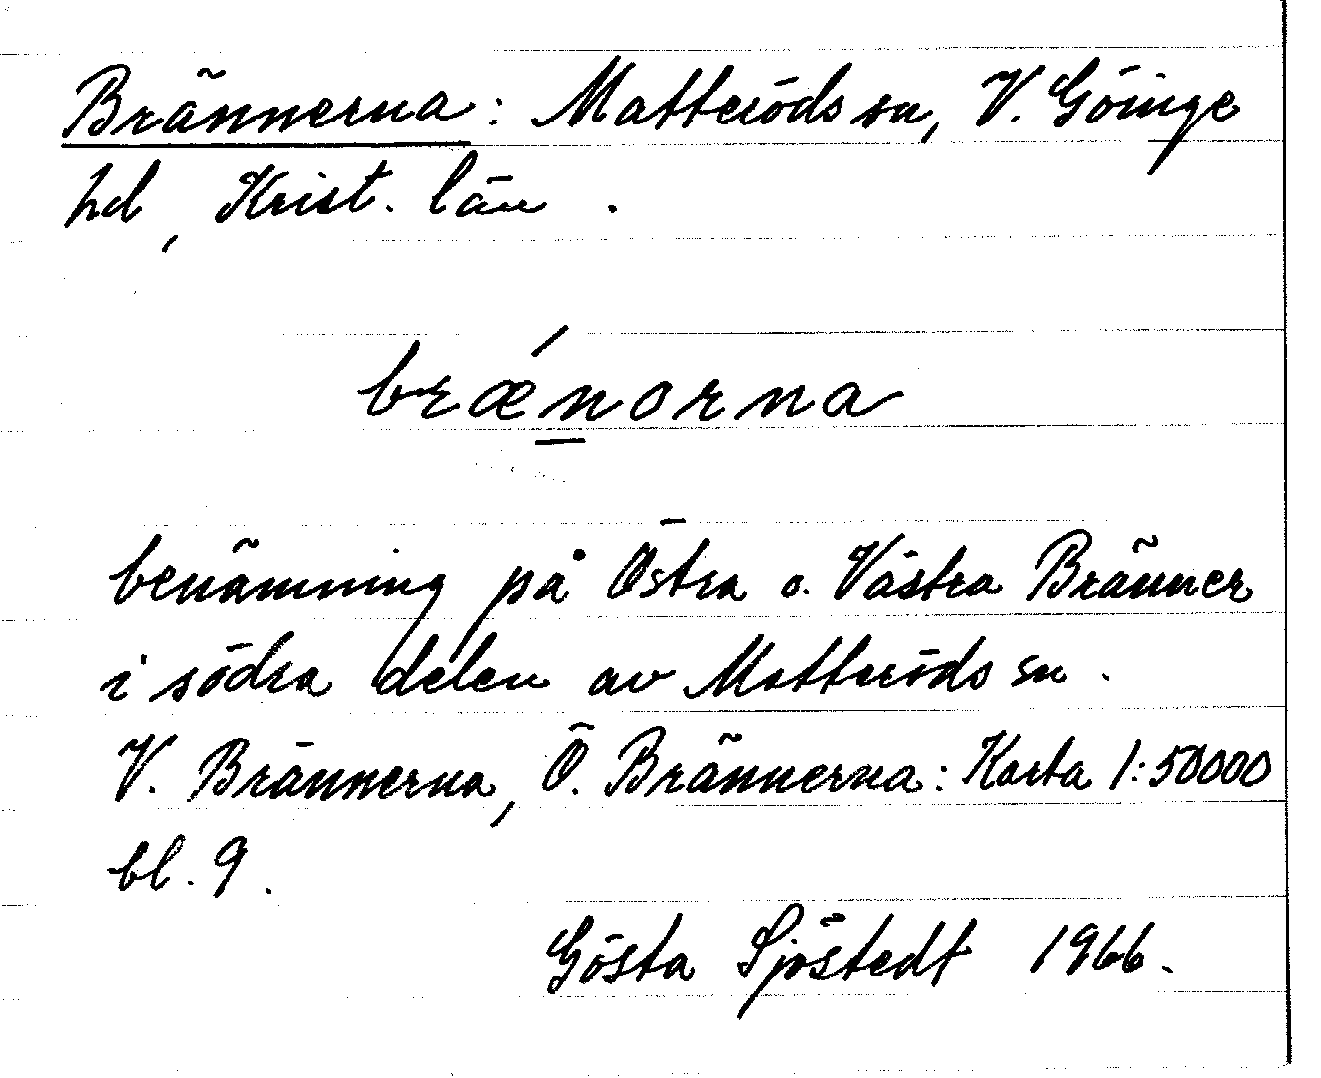 Brännerna: Matteröds sn, V. Göinge
hd, Krist. län.
bræ´n̲orna
benämning på Östra o. Västra Bränner
i södra delen av Matteröds sn.
V. Brännerna, Ö. Brännerna: Karta 1:50000
bl. 9.
Gösta Sjöstedt 1966.